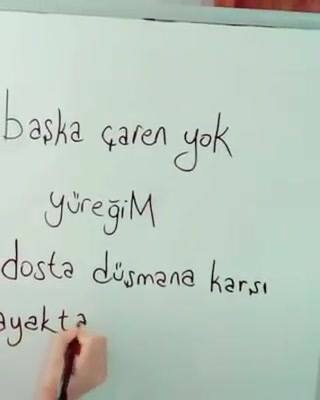 başka çaren yok
yüreğiM
dosta düşmana karşı
ayakta